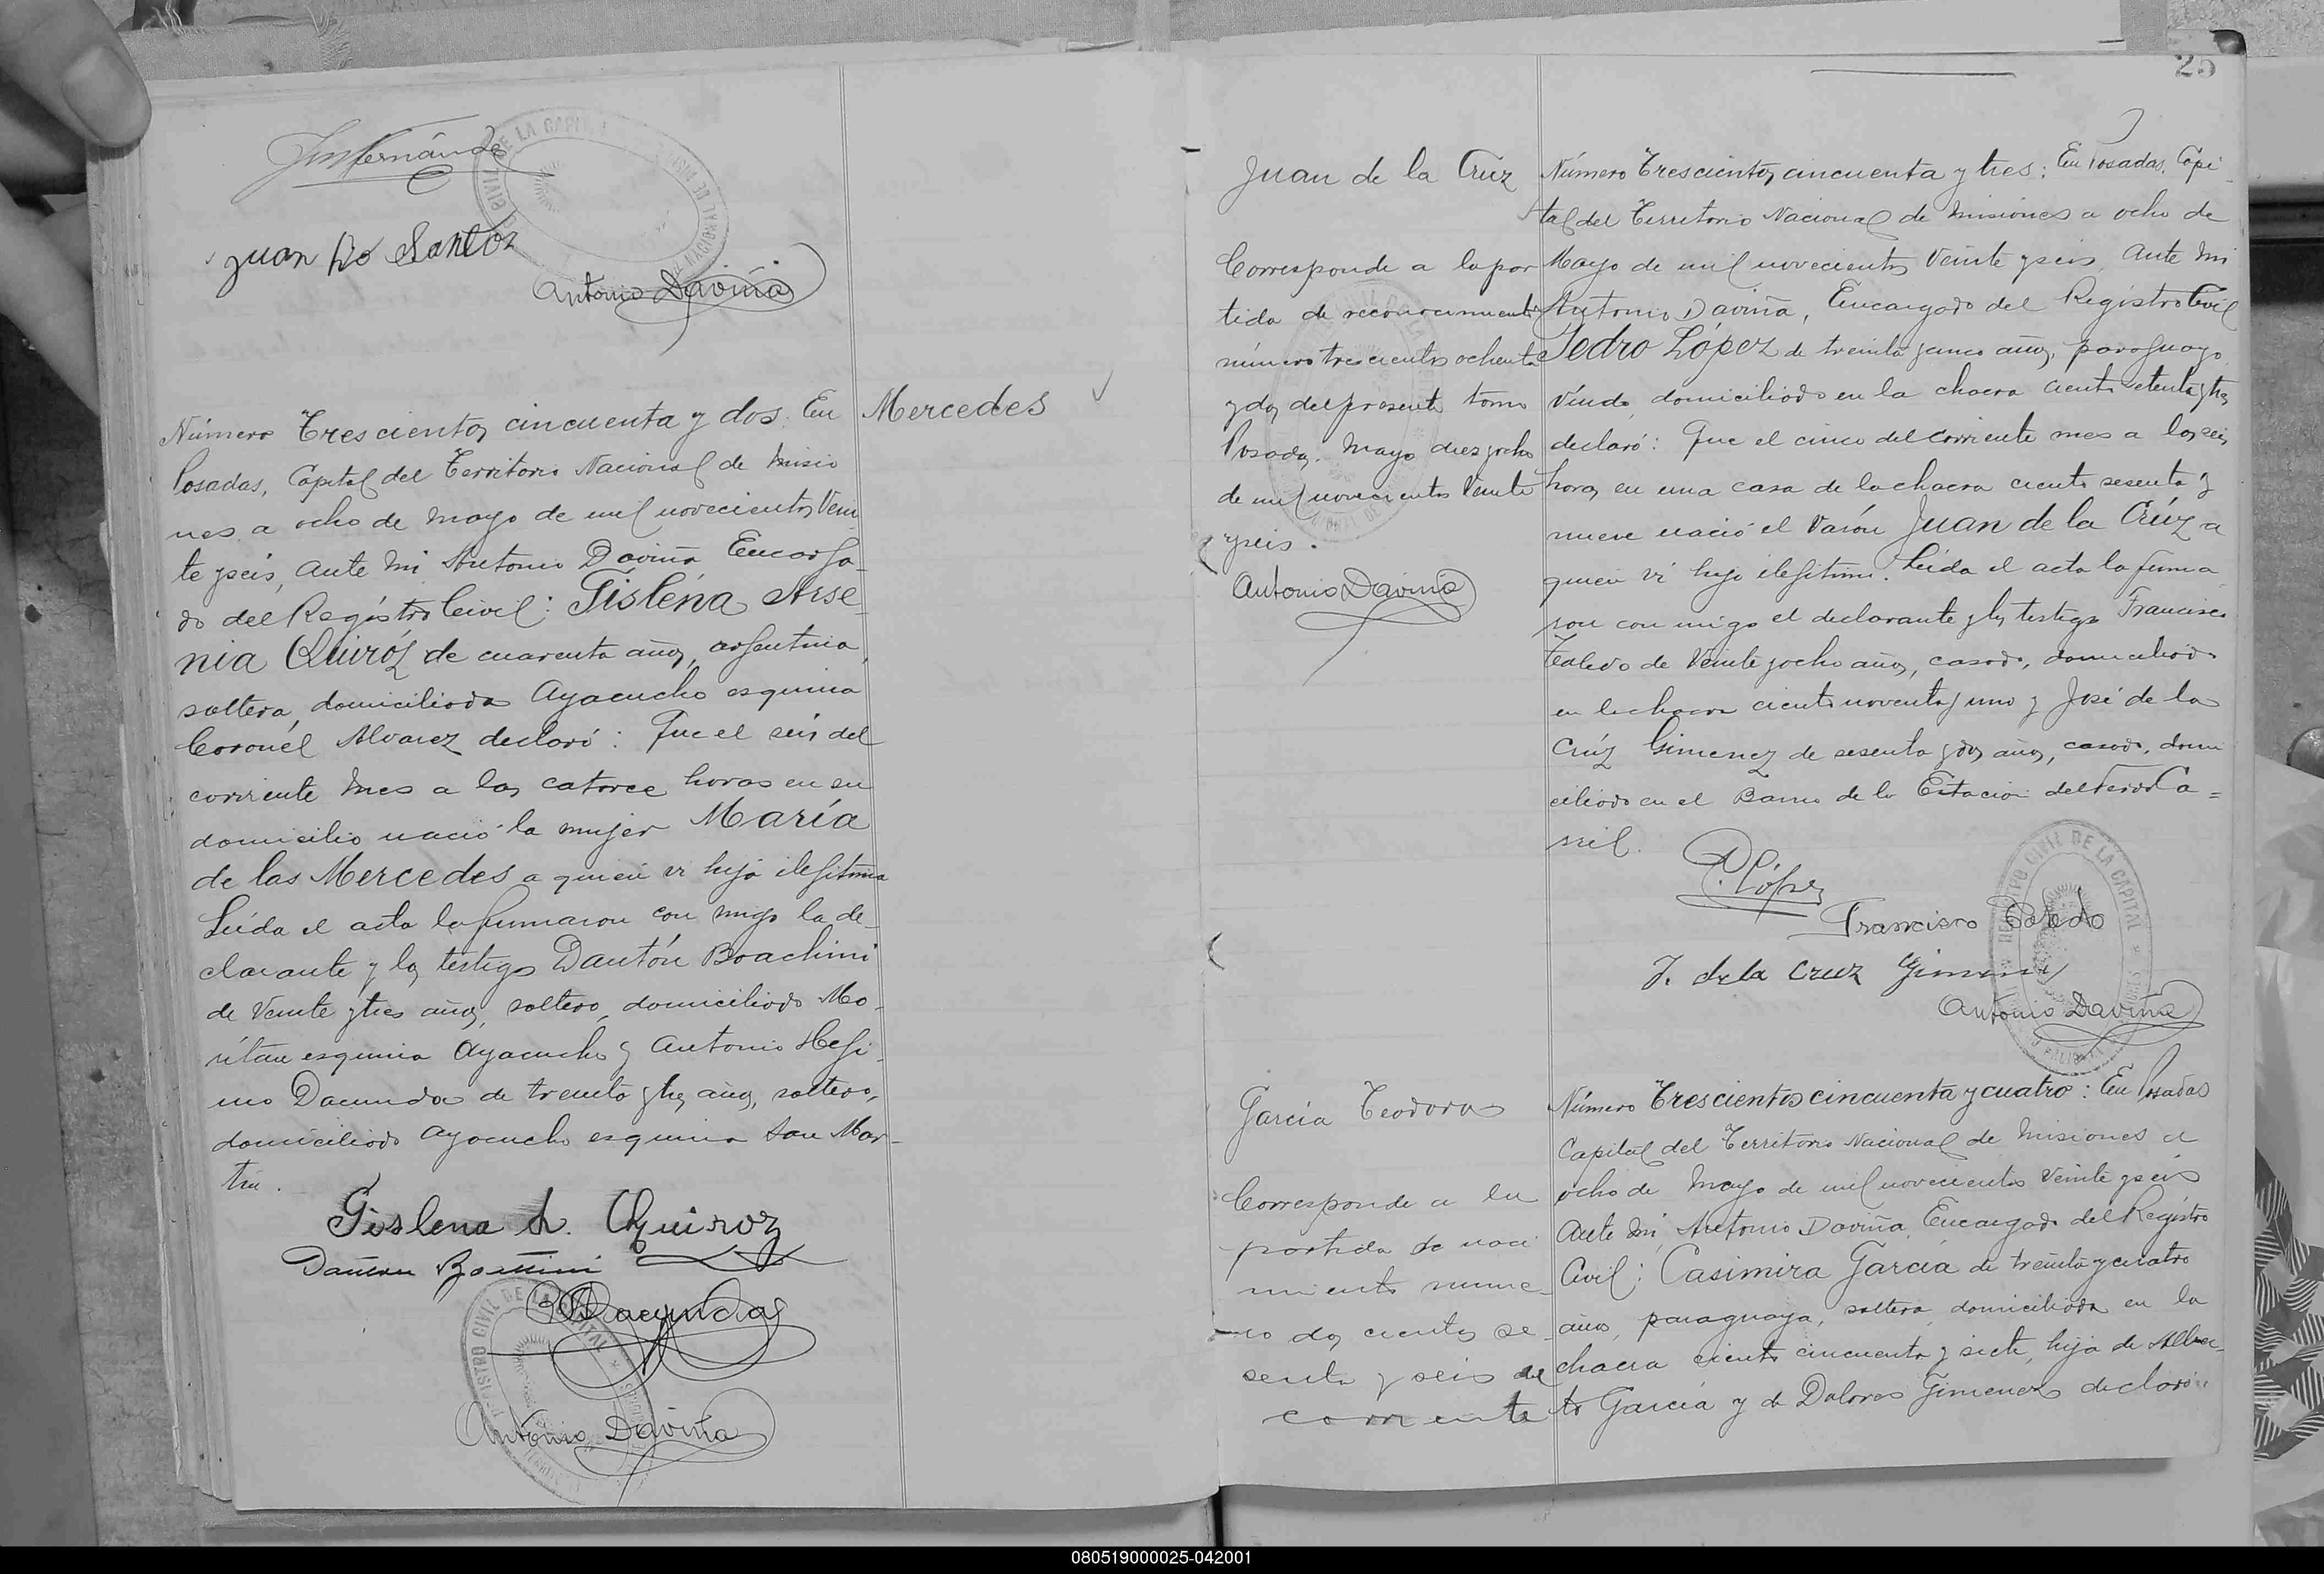 Juan Do Santos
Antonio Daviña
Número Trescientos cincuenta y dos. En
Posadas, Capital del Territorio Nacional de Misio
nes a ocho de Mayo de mil novecientos Vein
te y seis, Ante mi Antonio Daviña Encarga
do del Registro Civil: Gislena Arse
nia Quiróz de cuarenta años, argentina,
soltera, domiciliada Ayacucho esquina
Coronel Alvarez declaró: Que el seis del
corriente mes a las catorce horas en su
domicilio nació la mujer María
de las Mercedes a quien vi hija ilegitima
Leída el acta la firmaron con migo la de-
clarante y los testigos Dantón Boachini
de Veinte y tres años, soltero, domiciliado Mo-
ritan esquina Ayacucho y Antonio Hegi-
nio Dacunda de treinta y tres años, soltero,
domiciliado Ayacucho esquina San Mar-
tin.
Gislena A. Quiroz
Dacunda
Antonio Daviña
Mercedes
25
Juan de la Cruz
Corresponde a la par
tida de reconocimiento
número trescientos ochenta
y dos del presente tomo
Posadas. Mayo diez y ocho
de mil novecientos Veinte
y seis.
Antonio Daviña
Número Trescientos cincuenta y tres: En Posadas, Capi-
tal del Territorio Nacional de Misiones a ocho de
Mayo de mil novecientos Veinte y seis, Ante mi
Antonio Daviña, Encargado del Registro Civil
Pedro López de treinta y cinco años, paraguayo
Viudo, domiciliado en la chacra ciento setenta y tres
declaró: Que el cinco del corriente mes a las seis
horas en una casa de la chacra ciento sesenta y
nueve nació el Varón Juan de la Crúz a
quien vi hijo ilegitimo. Leída el acta la firma
ron con migo el declarante y los testigos Francisco
Toledo de Veinte y ocho años, casado, domiciliado
en la chacra ciento noventa y uno y José de la
Crúz Gimenez de sesenta y dos años, casado, domi
ciliado en el Barrio de la Estación del Ferro Ca=
rril.
P. López
Francisco Toledo
J. de la Cruz Gimenez
Antonio Daviña
García Teodora
Corresponde a la
partida de naci
miento nume-
ro dos cientos se-
senta y seis del
corriente
Número Trescientos cincuenta y cuatro: En Posadas
Capital del Territorio Nacional de Misiones a
ocho de Mayo de mil novecientos Veinte y seis
Ante mi, Antonio Daviña, Encargado del Registro
Civil: Casimira García de treinta y cuatro
años, paraguaya, soltera, domiciliada en la
chacra ciento cincuenta y siete, hija de Alber-
to García y de Dolores Gimenez declaró:
080519000025-042001